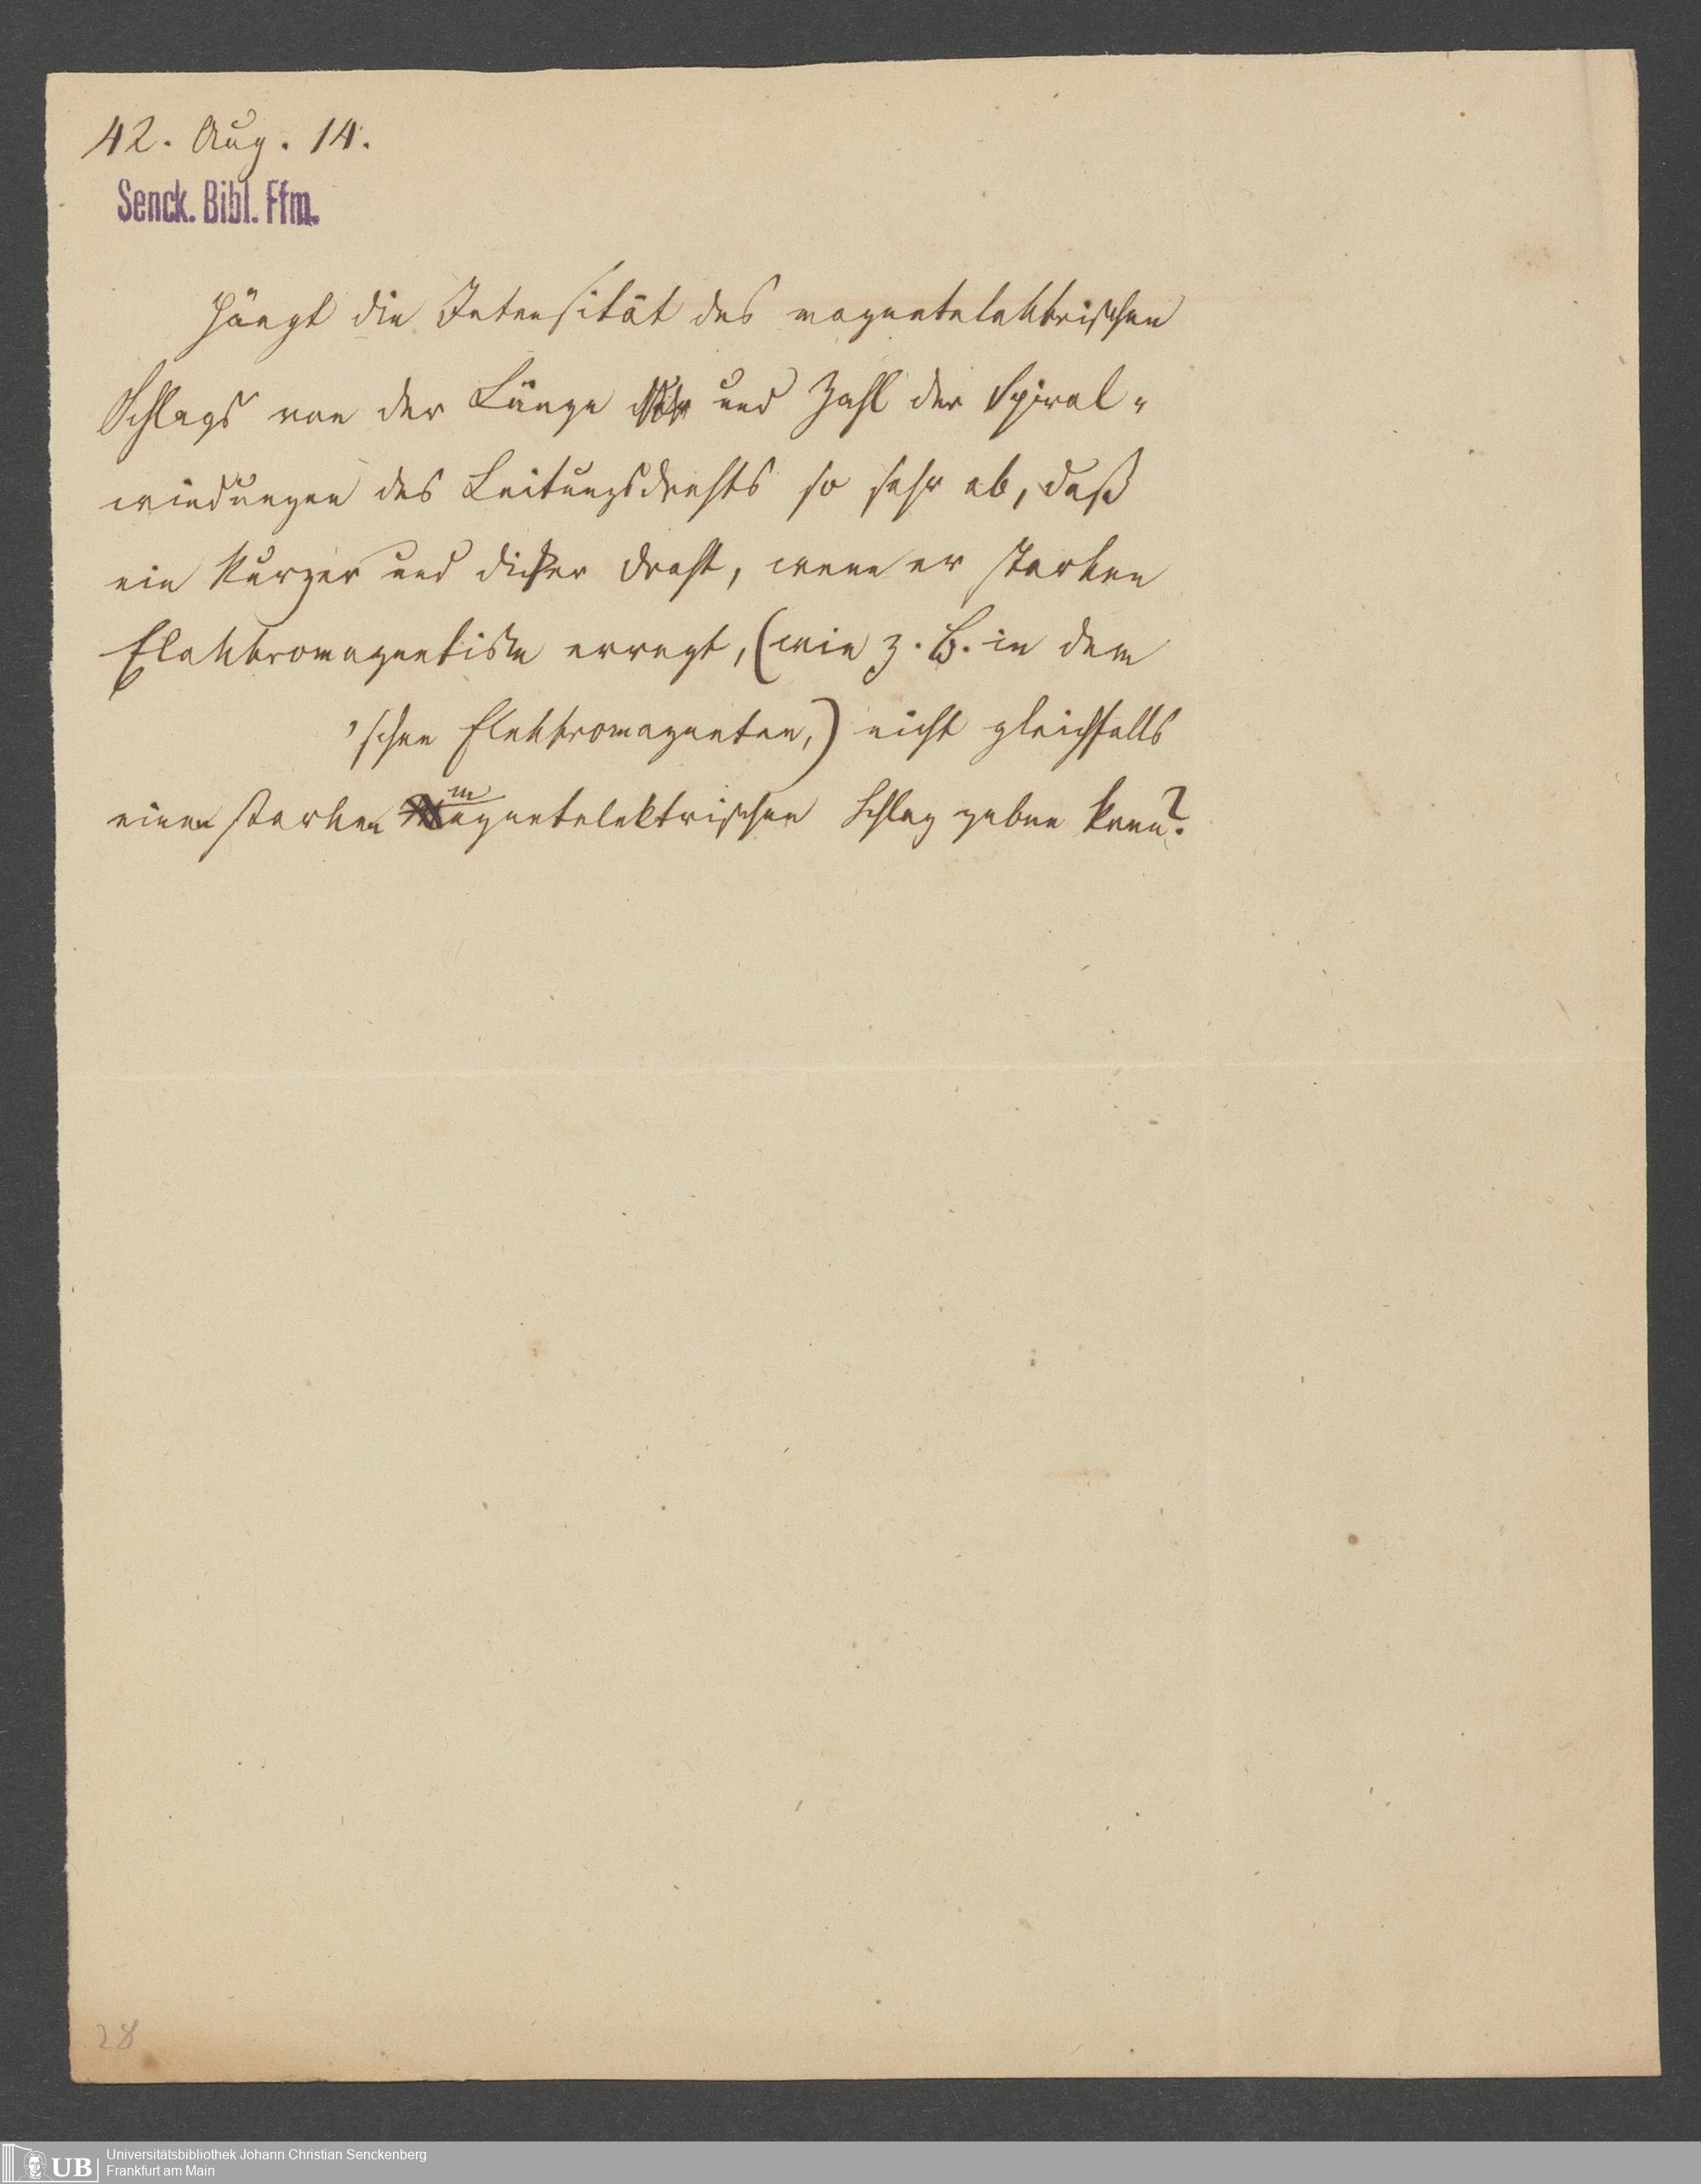 42. Aug. 14.
Senck. Bibl. Ffm.
Hängt die Intensität des magnetelektrischen
Schlags von der Länge und Zahl der Spiral-
windungen des Leitungsdrahts so sehr ab, daß
ein kurzer und dicker Draht, wenn er starken
Elektromagnetism erregt, (wie z. B. in dem
'schen Elektromagneten,) nicht gleichfalls
einen starken magnetelektrischen Schlag geben kann?
28
UB
Universitätsbibliothek Johann Christian Senckenberg
Frankfurt am Main